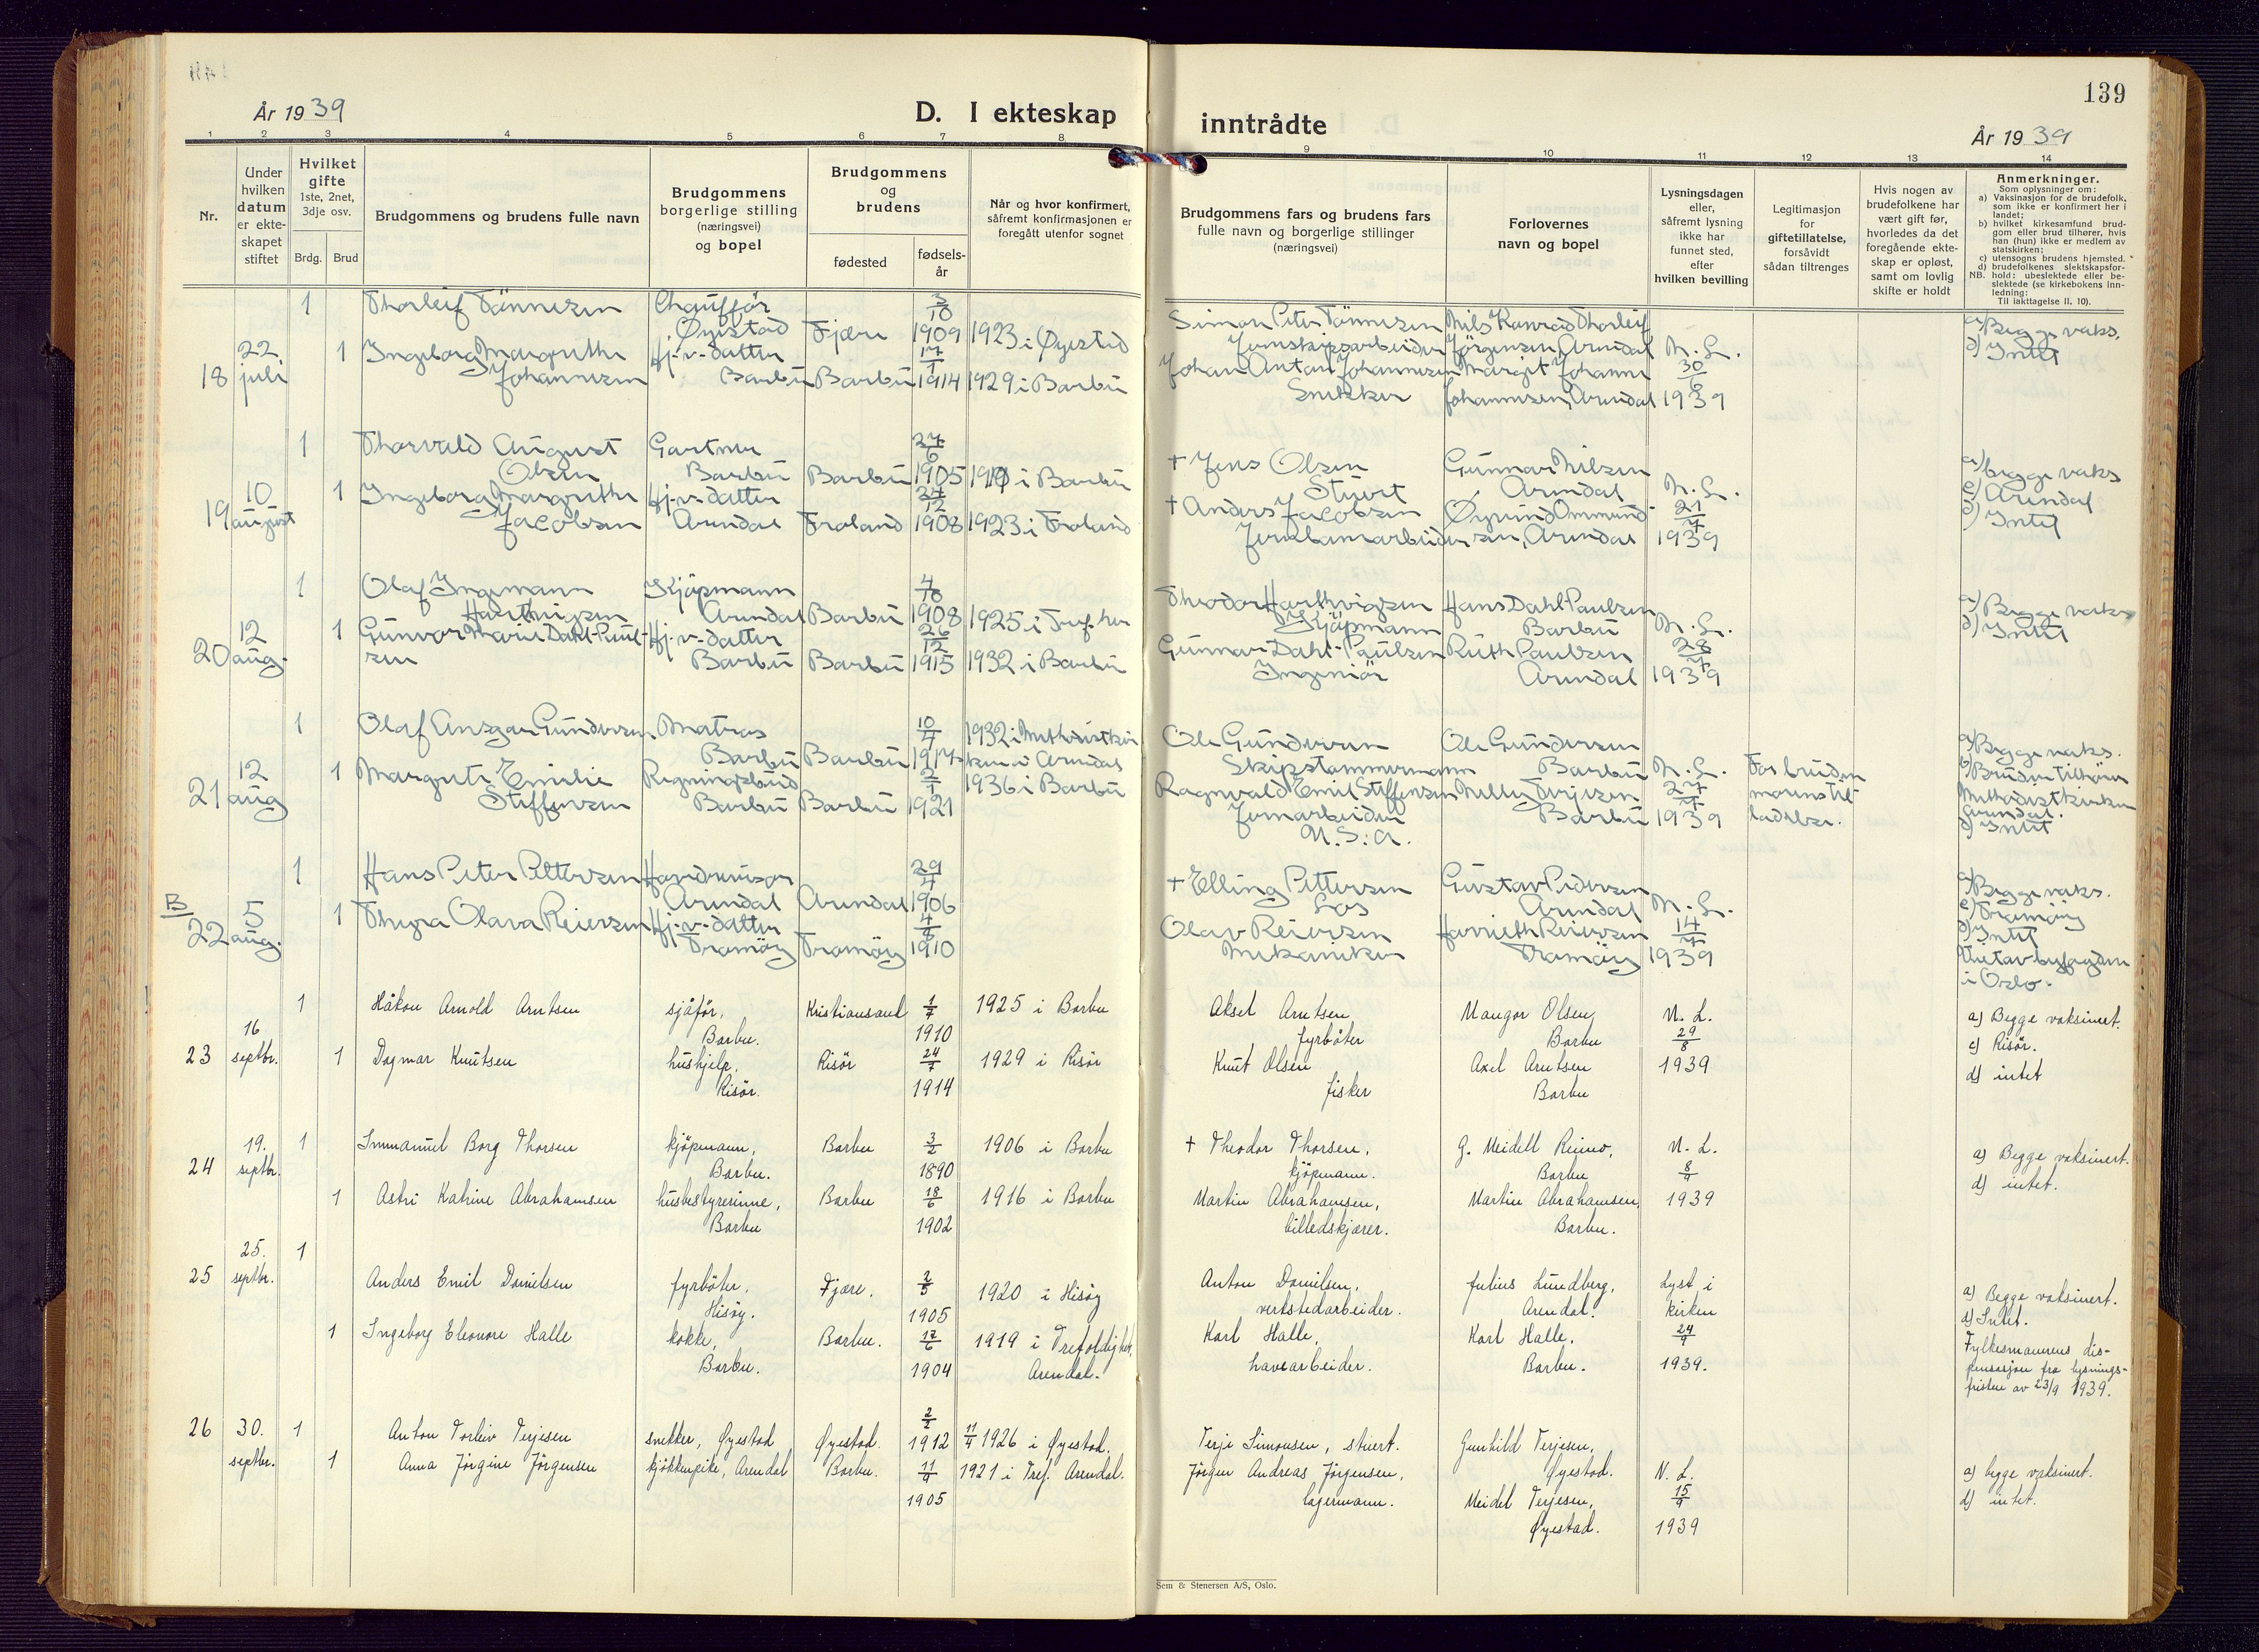 139
År 1939
D. I ekteskap inntrådte
År 1939
1 2 3 4 5 6 7 8 9 10 11 12 13 14
Nr.
Under hvilken datum er ekteskapet stiftet
Hvilket gifte 1ste, 2net, 3dje osv.
Brdg. Brud
Brudgommens og brudens fulle navn
Brudgommens borgerlige stilling (næringsvei) og bopel
Brudgommens og brudens
fødested
fødselsår
Når og hvor konfirmert, såfremt konfirmasjonen er foregått utenfor sognet
Brudgommens fars og brudens fars fulle navn og borgerlige stillinger (næringsvei)
Forlovernes navn og bopel
Lysningsdagen eller, såfremt lysning ikke har funnet sted, efter hvilken bevilling
Legitimasjon for giftetillatelse, forsåvidt sådan tiltrenges
Hvis nogen av brudefolkene har vært gift før, hvorledes da det foregående ekteskap er opløst, samt om lovlig skifte er holdt
Anmerkninger.
Som oplysninger om:
a) Vaksinasjon for de brudefolk, som ikke er konfirmert her i landet;
b) hvilket kirkesamfund brudgom eller brud tilhører, hvis han (hun) ikke er medlem av statskirken;
c) utensogns brudens hjemsted.
d) brudefolkenes slektskapsforhold: ubeslektede eller beslektede (se kirkebokens innledning:
NB.
Til iakttagelse II. 10).
18 22 juli
1 Thorleif Tönnesen Chaufför Øyestad Fjære 3/10 1909 1923 i Øyestad
1 Ingeborg Margrethe Johannesen Hj.v. datter Barbu Barbu 17/1 1914 1929 i Barbu
Simon Peter Tönnesen Jernskipsarbeider
Johan Antan Johannesen Snekker
Nils Konrad Thorleif Jørgensen, Arendal
Margit Johanne Johannesen, Arendal
N. L. 30/6 1939
a) Begge vaks.
d) Intet
19 10 august
1 Thorvald August Olsen Gartner Barbu Barbu 27/6 1905 i Barbu
1 Ingeborg Margrethe Jacobsen Hj.-v.-datter Arendal Froland 27/12 1908 1923 i Froland
+ Jens Olsen Stuert
+ Anders Jacobsen Jernbanearbeider
Gunnar Nilsen Arendal
Øyvind Ommundsen, Arendal
N. L. 21/7 1939
a) begge vaks
c) Arendal
d) Intet
20 12 aug.
1 Olaf Ingemann Harthvigsen Kjöpmann Arendal Barbu 4/10 1908 1925 i Tref.
1 Gunvor Marie Dahl-Paulsen Hj.-v.-datter Barbu Barbu 26/12 1915 1932 i Barbu
Theodor Harthvigsen Kjöpmann
Gunnar Dahl-Paulsen Ingeniör
Hans Dahl-Paulsen Barbu
Ruth Paulsen Arendal
N. L. 28/7 1939
a) Begge vaks
d) Intet
21 12 aug
1 Olaf Ansgar Gundersen Matros Barbu Barbu 10/7 1917 1932 i Methodistkirken i Arendal
1 Margrete Emilie Steffensen Regningsbud Barbu Barbu 2/7 1921 1936 i Barbu
Ole Gundersen Skipstømmermann
Ragnvald Emil Steffensen Jernarbeider U.S.A.
Ole Gundersen Barbu
Nelly Terjesen Barbu
N. L. 27/7 1939
For bruden morens tilladelse.
a) Begge vaks.
b) Bruden tilhører Methodistkirken Arendal.
d) Intet
B 22 5 aug.
1 Hans Peter Pettersen Arendal Arendal 29/7 1906
1 Thyra Olava Reiersen Hj.-v.-datter Tromöy Tromöy 4/8 1910
+ Elling Pettersen Los
Olav Reiersen Mekaniker
Gustav Pedersen Arendal
Harrieth Reiersen Tromöy
N. L. 14/7 1939
a) Begge vaks.
c) Tromöy
d) Intet
i Oslo.
23 16 septbr.
1 Håkon Arnold Arntsen sjåför, Barbu. Kristiansand 1/7 1910 1925 i Barbu
1 Dagmar Knutsen hushjelp, Risör. Risör 24/7 1914 1929 i Risör
Aksel Arntsen, fyrböter
Knut Olsen fisker
Mangor Olsen, Barbu
Axel Arntsen Barbu
N. L. 29/8 1939
a) Begge vaksinert.
c) Risör.
d) intet
24 19. septbr.
1 Immanuel Borg Thorsen kjöpmann, Barbu. Barbu 3/2 1890 1906 i Barbu
1 Astri Katrine Abrahamsen husbestyrerinne, Barbu Barbu 18/6 1902 1916 i Barbu
+ Theodor Thorsen, kjöpmann.
Martin Abrahamsen, billedskjærer.
G. Meidell Barbu
Martin Abrahamsen, Barbu.
N. L. 8/9 1939
a) Begge vaksinert.
d) intet.
25 25. septbr.
1 Anders Emil Danielsen fyrböter, Hisöy. Fjære. 2/5 1905 1920 i Hisöy
1 Ingeborg Eleonore Halle kokke, Barbu. Barbu. 17/6 1904 1919 i Trefoldighet, Arendal.
Anton Danielsen, verkstedarbeider.
Karl Halle, havearbeider.
Julius Lundberg, Arendal.
Karl Halle, Barbu.
Lyst i kirken 24/9 1939.
a) Begge vaksinert.
d) Intet.
Fylkesmannens dispensasjon fra lysningsfristen av 23/9 1939.
26 30. septbr.
1 Anton Torleiv Terjesen snekker, Øyestad Øyestad. 2/2 1912 11/4 1926 i Øyestad.
1 Anna Jörgine Jörgensen kjökkenpike, Arendal Barbu. 11/9 1905 1921 i Tref. Arendal.
Terje Simonsen, stuert.
Jörgen Andreas Jörgensen, lagermann.
Gunhild Terjesen, Øyestad.
Meidel Terjesen, Øyestad.
N. L. 15/9 1939
a) begge vaksinert.
d) intet.
Sem & Stenersen A/S, Oslo.